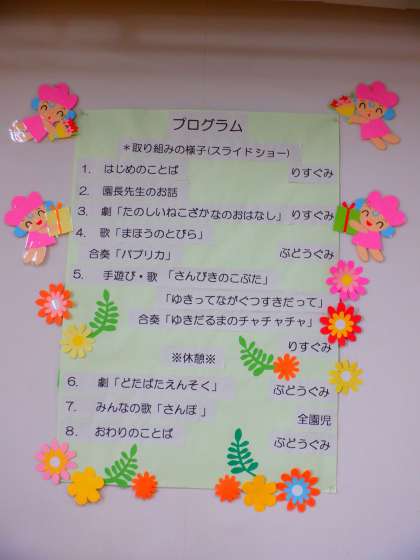 プログラム
＊取り組みの様子(スライドショー)
1. はじめのことば りすぐみ
2. 園長先生のお話
3. 劇「たのしいねこざかなのおはなし」りすぐみ
4. 歌「まほうのとびら」
合奏「パプリカ」 ぶどうぐみ
5. 手遊び・歌 「さんびきのこぶた」
「ゆきってながぐつすきだって」
合奏「ゆきだるまのチャチャチャ」
りすぐみ
※休憩※
6. 劇「どたばたえんそく」 ぶどうぐみ
7. みんなの歌「さんぽ 」 全園児
8. おわりのことば ぶどうぐみ